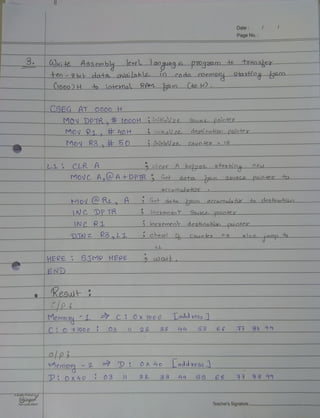 Date : / /
Page No. :
3. Write Assembly level language program to transfer
ten - 8bit data available in code memory starting from
(1000)H to internal RAM from (40H).
CSEG AT 0000 H
MOV DPTR, # 1000H ; Initialize source pointer
MOV R1, # 40H ; initialize destination pointer
MOV R3, # 50 ; Initialize counter = 10
L1 : CLR A ; clear A before starting
MOVC A, @A+DPTR ; Get data from source pointer to
accumulator.
MOV @R1, A ; Get data from accumulator to destination
INC DPTR ; increment source pointer
INC R1 ; increment destination pointer
DJNZ R3, L1 ; check if counter is zero jump to
HERE : SJMP HERE ; wait.
END
Result :
i/p :
Memory - 1 → C : 0x1000 [address]
C : 0x1000 : 03 11 22 33 44 55 66 77 88 99
o/p :
Memory - 2 → D : 0x40 [address]
D : 0x40 : 03 11 22 33 44 55 66 77 88 99
Teacher's Signature